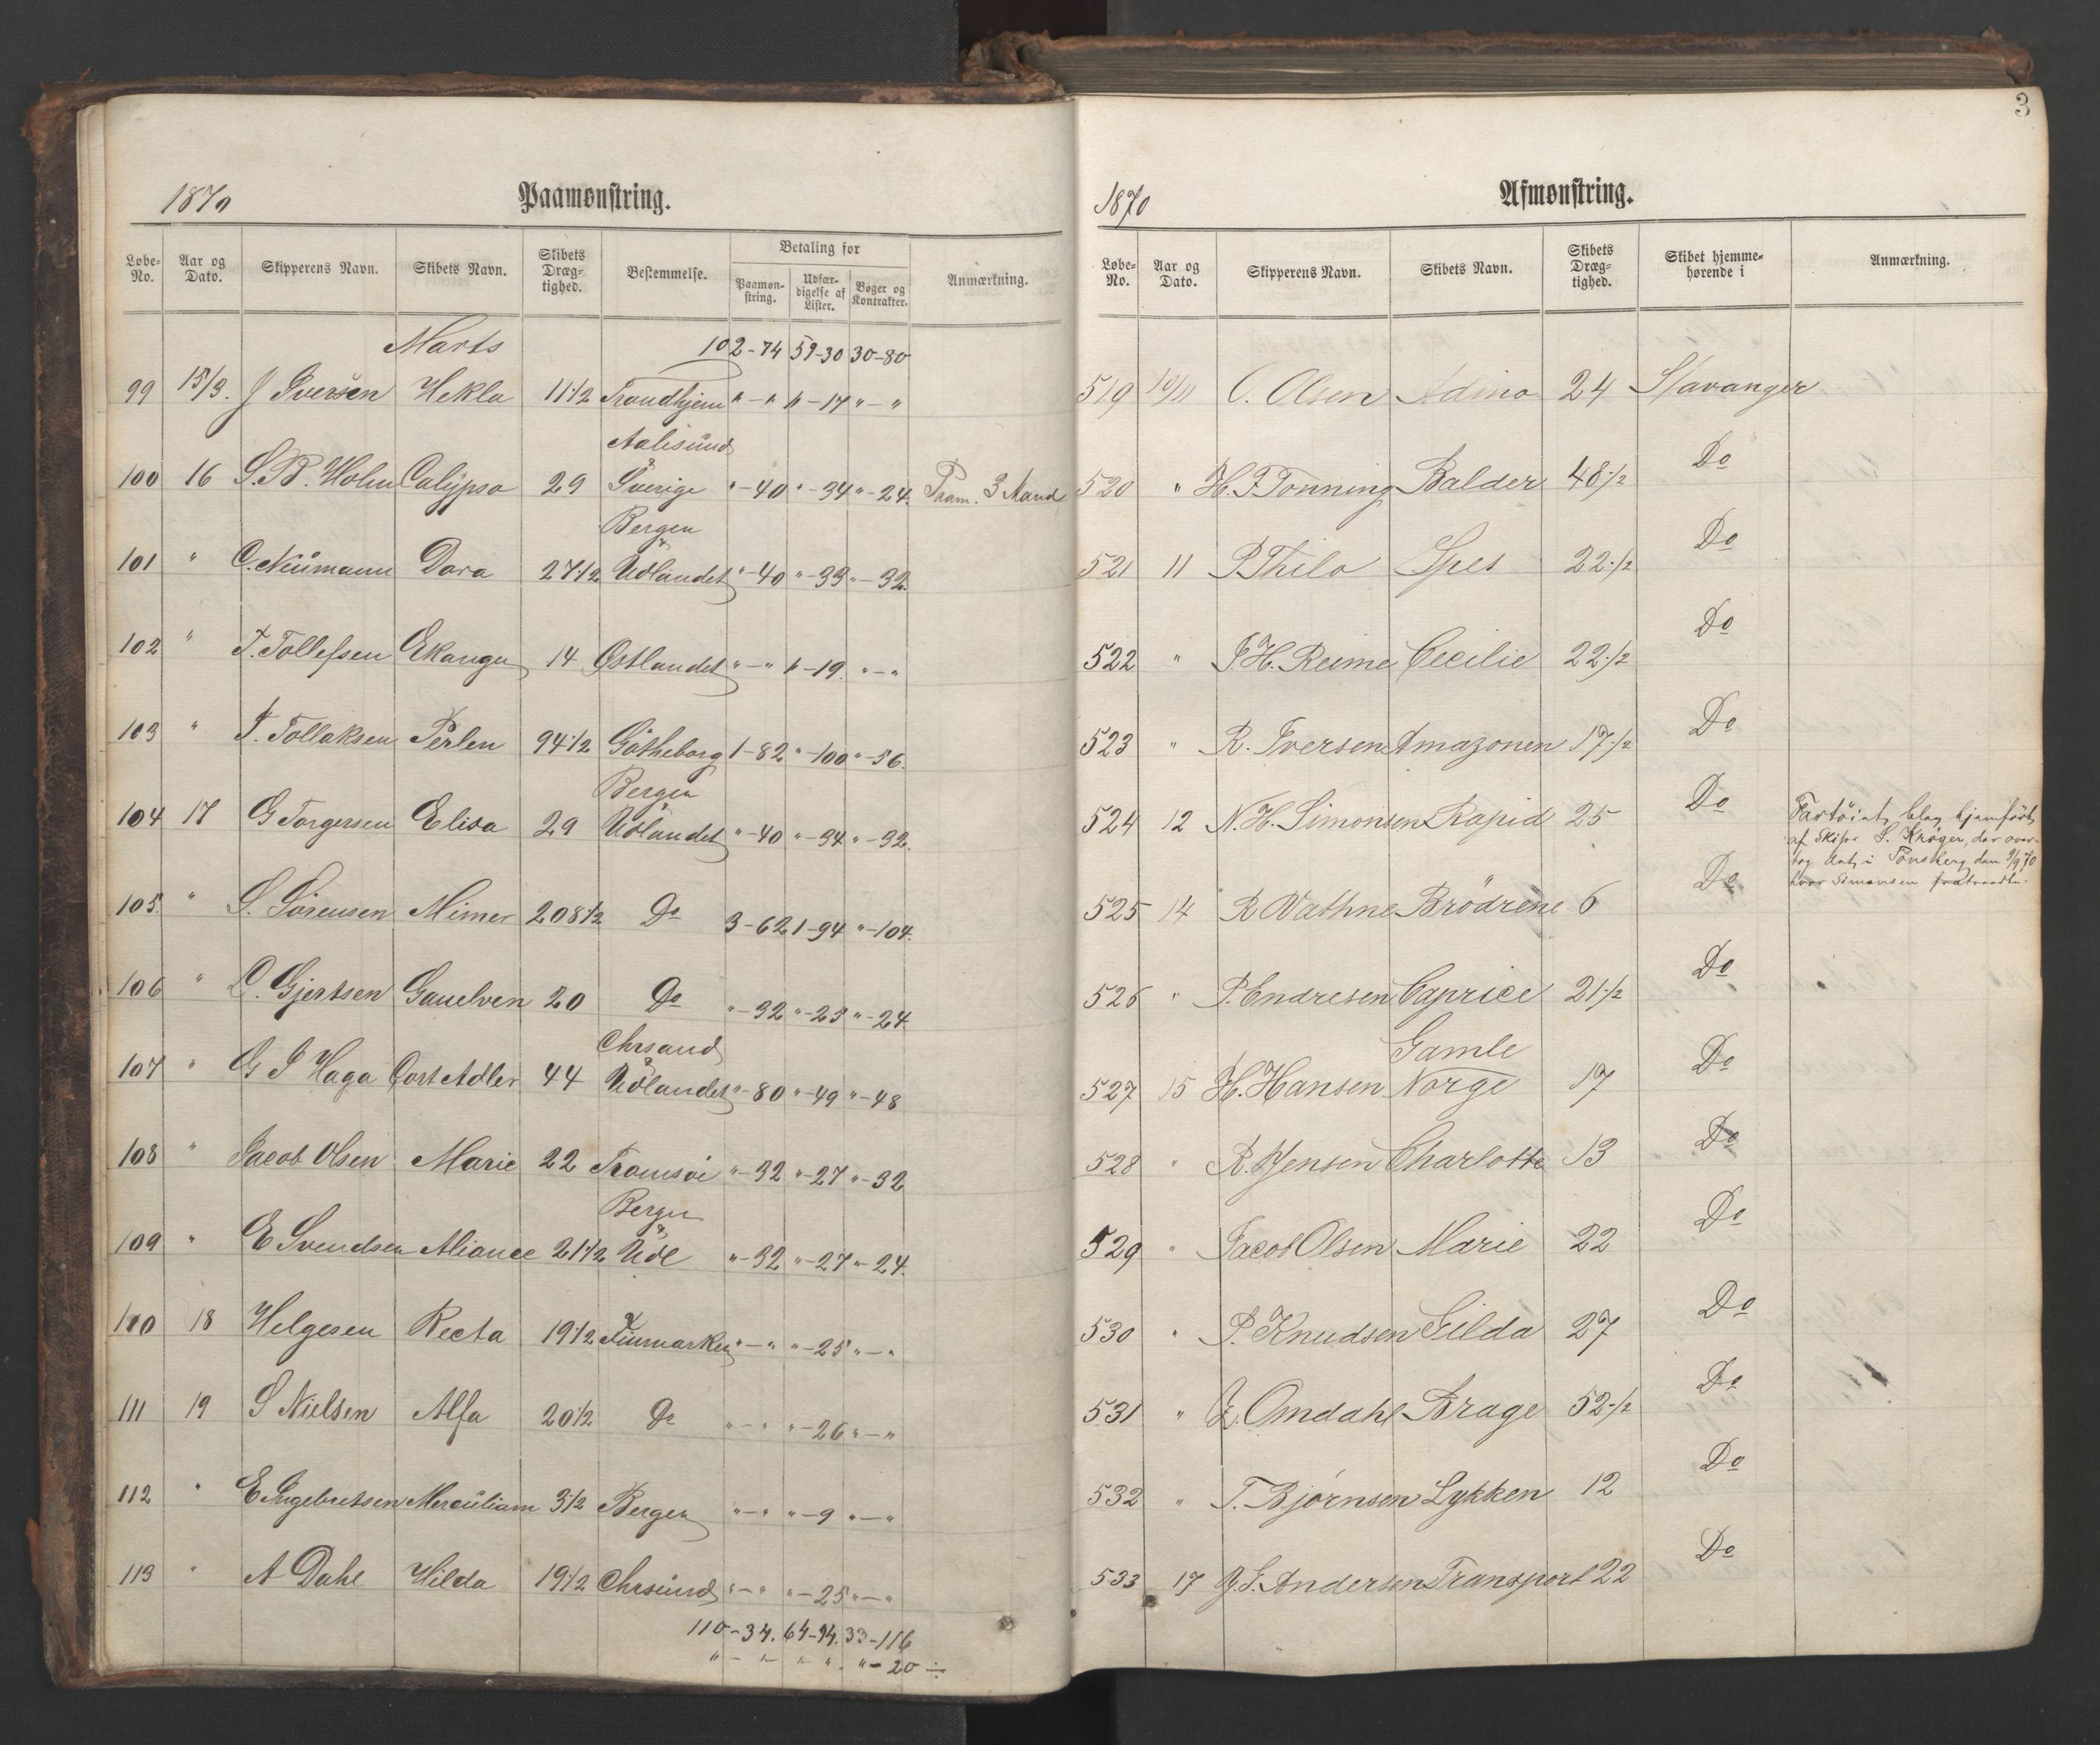 1870 Paamønstring.
Løbe-No. Aar og Dato. Skipperens Navn. Skibets Navn. Skibets Dræg-tighed. Bestemmelse. Betaling for Paamøn-string. Udfær-digelse af Lister. Bøger og Kontrakter. Anmærkning.
Marts 102-74 59-30 30-80
99 15/3. J Iversen Hekla 11 1/2 Trondhjem " - " " - 17 " - "
Aalesund
100 16 S. B. Holm Calypso 29 & Sverige " - 40 " - 34 " - 24 Pram. 3 Mand
Bergen
101 " C. Neümann Dora 27 1/2 & Udlandet " - 40 " - 33 " - 32.
102 " T. Tollefsen Ekanger 14 Østlandet " - " " - 19. " - "
103 " T. Tollaksen Perlen 94 1/2 Götheborg 1 - 82 " - 100 " - 56.
Bergen
104 17 G Torgersen Elisa 29 & Udlandet " - 40 " - 34 " - 32.
105. " S. Sörensen Mimer 208 1/2 Do 3 - 62 1 - 94 " - 104.
106 " Gjertsen Gauelven 20 Do " - 32 " - 25 " - 24
Chrsand
107 " G S Haga Cort Adler 44 & Udlandet " - 80 " - 49 " - 48
108 " Jacob Olsen Marie 22 Tromsöe " - 32 " - 27 " - 32
Bergen
109 " E Svendsen Aliance 21 1/2 & Udl " - 32 " - 27 " - 24.
110 18 Helgesen Recta 19 1/2 Finmarken " - " " - 25 " - "
111 19 S Nielsen Alfa 20 1/2 Do " - " " - 26 " - "
112 " E Ingebretsen Mercüliam 3 1/2 Bergen " - " " - 9 " - "
113 " A Dahl Hilda 19 1/2 Chrsund " - " " - 25 " - "
110 - 34. 64 - 94. 33 - 116
" - " " " . " - 20 ÷
3
1870 Afmønstring.
Løbe-No. Aar og Dato. Skipperens Navn. Skibets Navn. Skibets Dræg-tighed. Skibet hjemme-hørende i Anmærkning.
519 10/11 O. Olsen Adina 24 Stavanger
520 " H. F. Tonning Balder 48 1/2 Do
521 11 P. Thilo Spes 22 1/2 Do
522 " T. H. Reime Cecilie 22 1/2 Do
523 " R. Iversen Amazonen 17 1/2 Do
524 12 N. H. Simonsen Rapid 25 Do Fartöiet blev hjemfört
af Skipr S. Kröger, der over-
tog det i Tönsberg den 9/9 70
hvor Simonsen fratraadte.
525 14 R Wathne Brödrene 6 Do
526 " P. Endresen Caprice 21 1/2 Do
Gamle
527 15 H. Hansen Norge 17 Do
528 " R. Jensen Charlotte 13 Do
529 " Jacob Olsen Marie 22 Do
530 " P. Knudsen Gilda 27 Do
531 " Z. Omdahl Brage 52 1/2 Do
532 " T. Bjørnsen Lykken 12 Do
533 17 J. S. Andersen Transport 22 Do